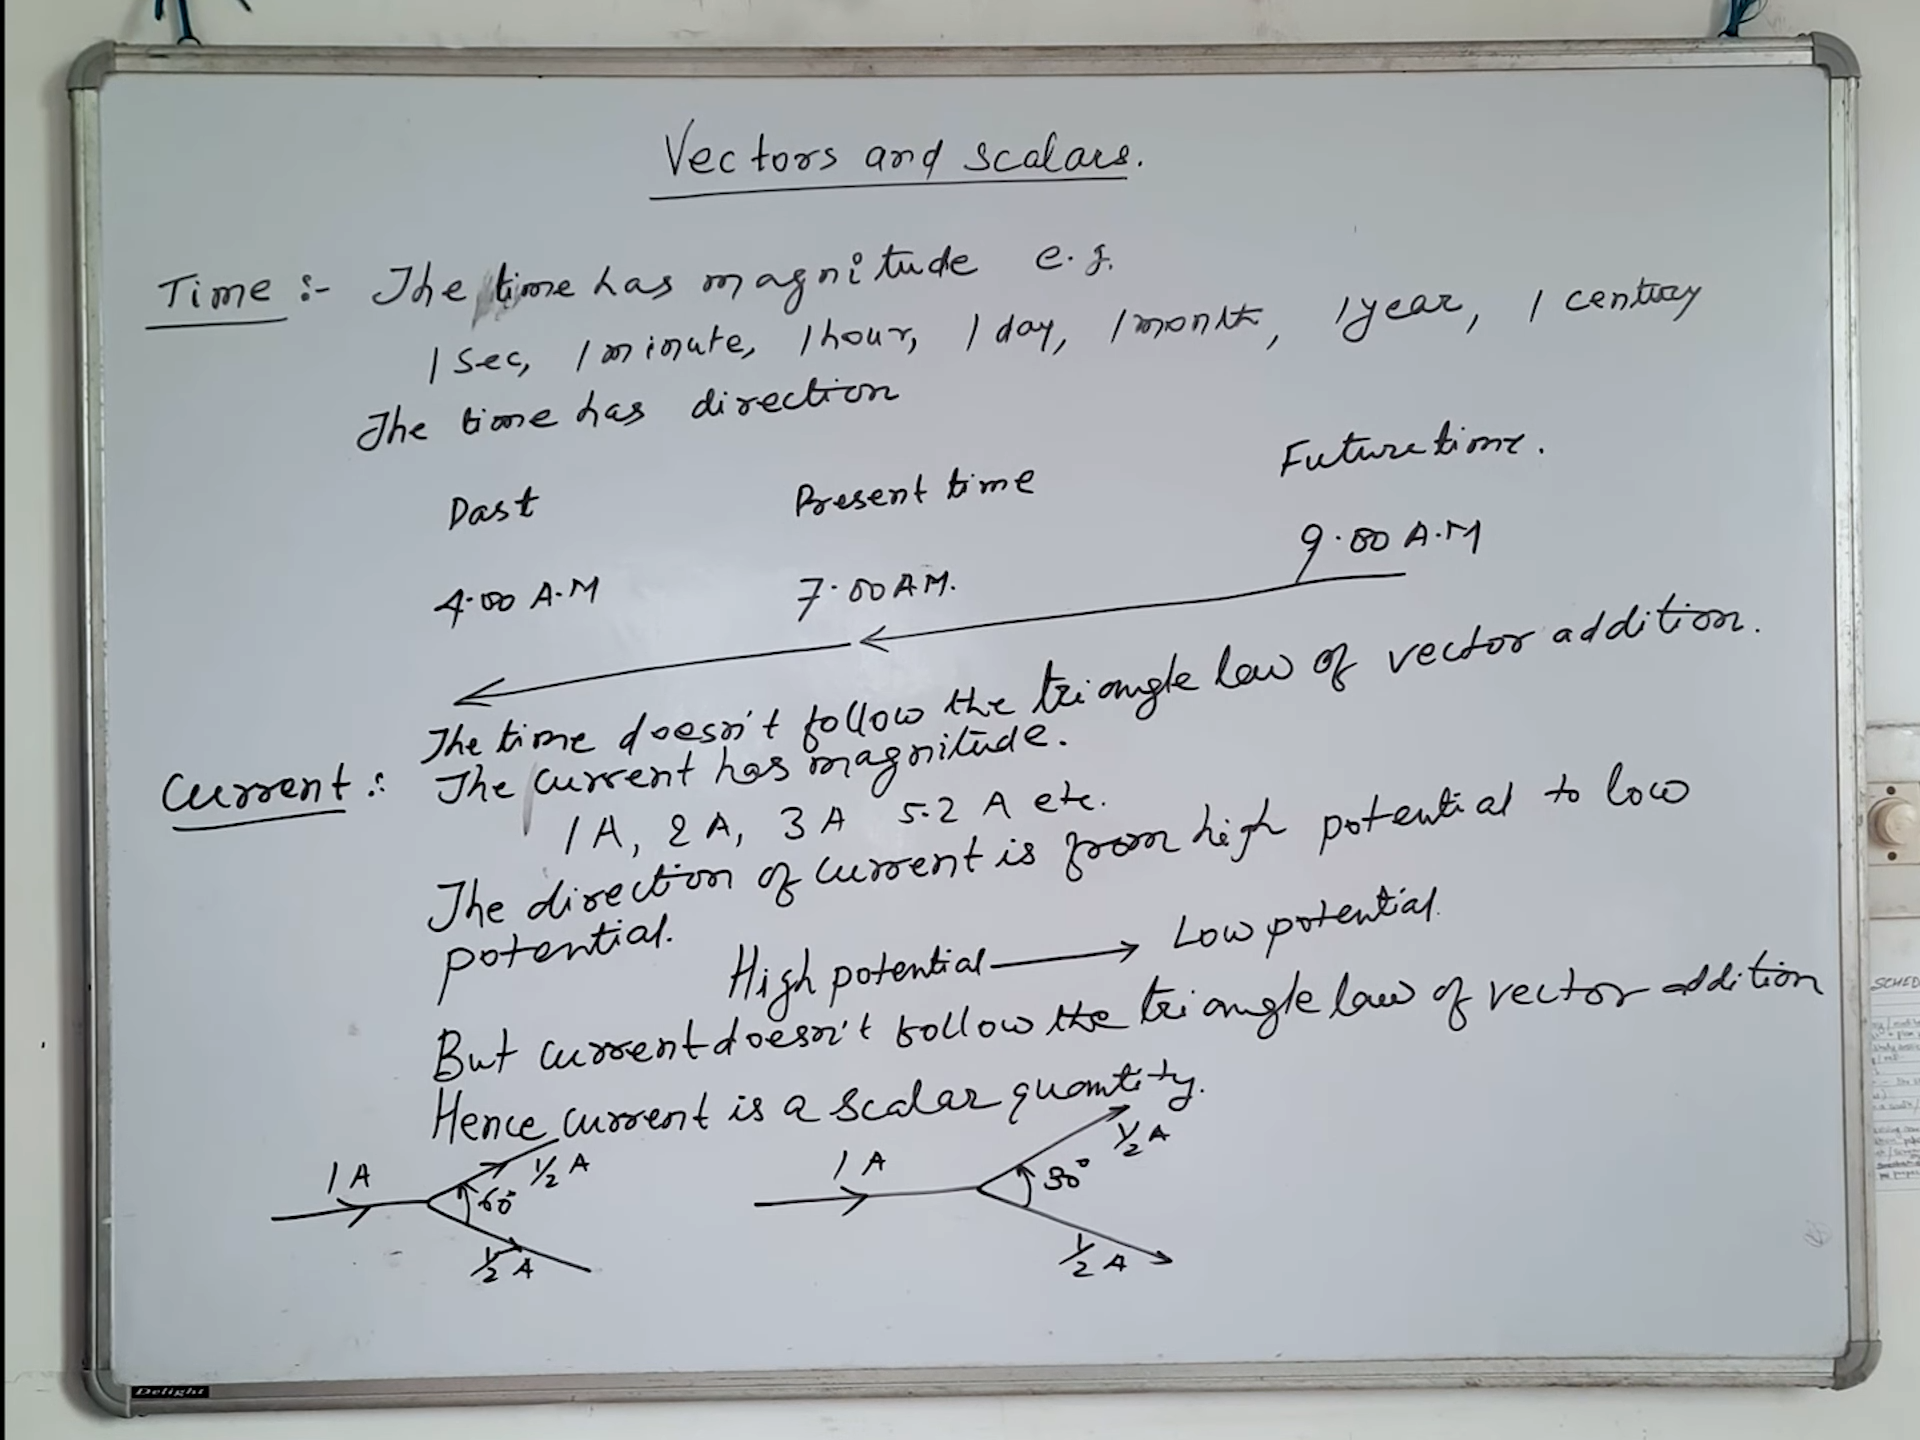 Vectors and scalars.
Time :- The time has magnitude e.g.
1 Sec, 1 minute, 1 hour, 1 day, 1 month, 1 year, 1 century
The time has direction
Past Present time Future time.
4.00 A.M 7.00 A.M. 9.00 A.M
The time doesn't follow the triangle law of vector addition.
Current :- The current has magnitude.
1A, 2A, 3A 5.2 A etc.
The direction of current is from high potential to low
potential.
High potential → Low potential.
But current doesn't follow the triangle law of vector addition
Hence current is a scalar quantity.
1 A 60° ½ A ½ A
1 A 30° ½ A ½ A
Delight
SCHED